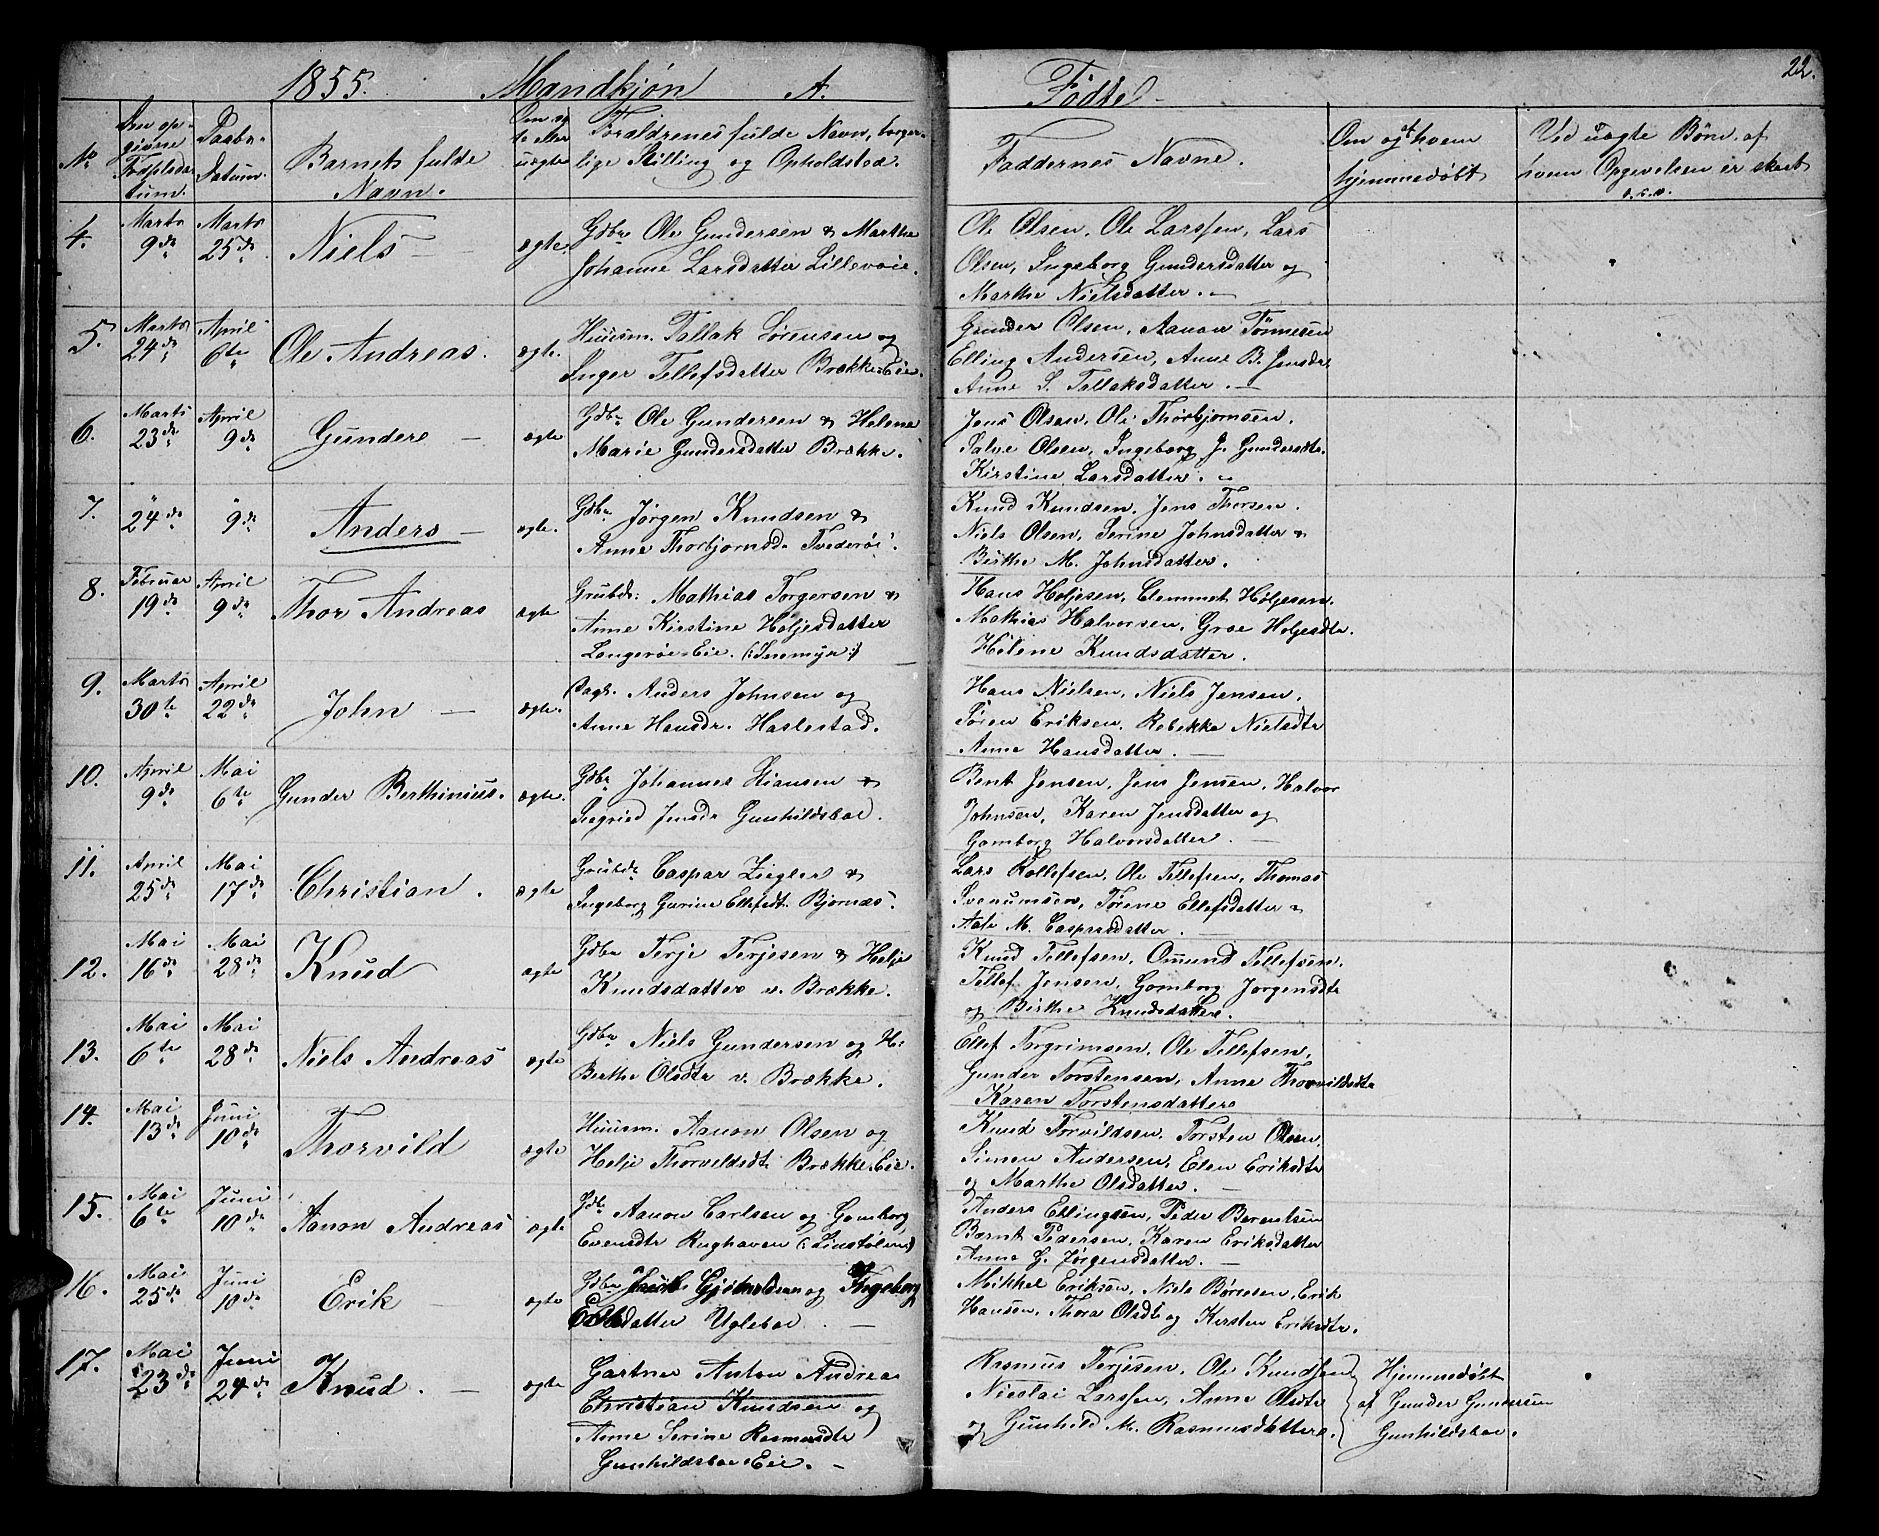 1855. Mandkjøn A.
No
Den op-
givne
Fødselsda-
tum.
Daabs-
Datum.
Barnets fulde
Navn.
Om æg
te eller
uægte
Forældrenes fulde Navn, borger-
lige Stilling og Opholdsted.
4.
Marts
9de
Marts
25de
Niels —
ægte.
Gdbr Ole Gundersen & Marthe
Johanne Larsdatter Lillevoie.
5.
Marts
24de
April
6te
Ole Andreas.
ægte.
Huusm. Tallak Sørensen og
Inger Tellefsdatter Brække-Eie.
6.
Marts
23de
April
9de
Gundere —
ægte
Gdbr Ole Gundersen & Helene
Marie Gundersdatter Brække.
7.
"
24de
"
9de
Anders —
ægte.
Gdbr Jørgen Knudsen &
Anne Thorbjornsd. Tvederøi.
8.
Februar
19de
April
9de
Thor Andreas
ægte
Grubdr: Mathias Torgersen &
Anne Kirstine Høljesdatter
Langerøie-Eie. (:Snemyr:)
9.
Marts
30te
April
22de
John —
ægte.
Dagl. Anders Johnsen og
Anne Hansdr. Haslestad.
10.
April
9de
Mai
6te
Gunder Berthinius.
ægte.
Gdbr Johannes Hansen &
Siegried Jensdr Gunhildsboe.
11.
April
25de
Mai
17de
Christian.
ægte
Grubdr Caspar Ziegler &
Ingeborg Gurine Ellefsdt. Bjornæs.
12.
Mai
16de
Mai
28de
Knud
ægte
Gdbr Terje Terjesen & Helje
Knudsdatter v. Brække.
13.
Mai
6te
Mai
28de
Niels Andreas
ægte
Gdbr Niels Gundersen og H:
Berthe Olsdtr v. Brække.
14.
Mai
13de
Juni
10de
Thorvild
ægte
Huusm. Aanon Olsen og
Helje Thorvildsdt. Brække-Eie.
15.
Mai
6te
Juni
10de
Aanon Andreas
ægte
Gdbr Aanon Carlsen og Gomborg
Evensdtr Rughaven (:Linstølen:)
16.
Mai
25de
Juni
10de
Erik —
ægte
Gdbr og Ingeborg
datter Ugleboe. —
17.
Mai
23de
Juni
24de
Knud. —
ægte
Gartner Anton Andreas
Christian Knudsen og
Anne Serine Rasmusdtr
Gunhildsboe Eie. —
Fødte
22.
Faddernes Navne.
Om og af hvem
hjemmedøbt
Ved uægte Børn, af
hvem Opgevelsen er skeet
o.s.v.
Ole Olsen, Ole Larssen, Lars
Olsen, Ingeborg Gundersdatter og
Marthe Nielsdatter. —
Gunder Olsen, Aanon Tønnesen
Elling Andersen, Anne B. Jensdr.
Anne S. Tallaksdatter. —
Jens Olsen, Ole Thorbjornsen.
Salve Olsen, Ingeborg J. Gundersdtr.
Kirstine Larsdatter. —
Knud Knudsen, Jens Thorsen.
Niels Olsen, Serine Johnsdatter &
Birthe M. Johnsdatter.
Hans Holjesen, Clemmet Høljesen.
Mathias Halvorsen, Groe Holjesdtr.
Helene Knudsdatter.
Hans Nielsen, Niels Jensen.
Søren Eriksen, Rebekke Nielsdtr
Anne Hansdatter. —
Bent Jensen, Jens Jensen, Halvor
Johnsen, Karen Jensdatter og
Gomborg Halvorsdatter. —
Lars Rollefsen, Ole Tellefsen, Thomas
Svenumsen, Torene Ellefsdatter &
Aale M. Caspersdatter. —
Knud Tellefsen, Omund Tellefsen.
Tellef Jensen, Gomborg Jorgensdtr
og Birthe Knudsdatter.
Ellef Torgrimsen, Ole Tellefsen,
Gunder Torstensen, Anne Thorvildsdtr
Karen Torstensdatter
Knud Torvildsen, Torsten Olsen,
Simen Andersen, Elen Eriksdtr
og Marthe Olsdatter. —
Anders Ellingsen, Peder Berentsen
Bærnt Pedersen, Karen Eriksdatter
Anne G. Jørgensdatter. —
Mikkel Eriksen, Niels Børresen, Erik
Hansen, Thora Olsdtr og Kirsten Eriksdtr.
Rasmus Terjesen, Ole Knudsen
Nicolai Larssen, Anne Olsdtr
og Gunhild M. Rasmusdatter.
Hjemmedøbt
af Gunder Gundersen
Gunhildsboe.